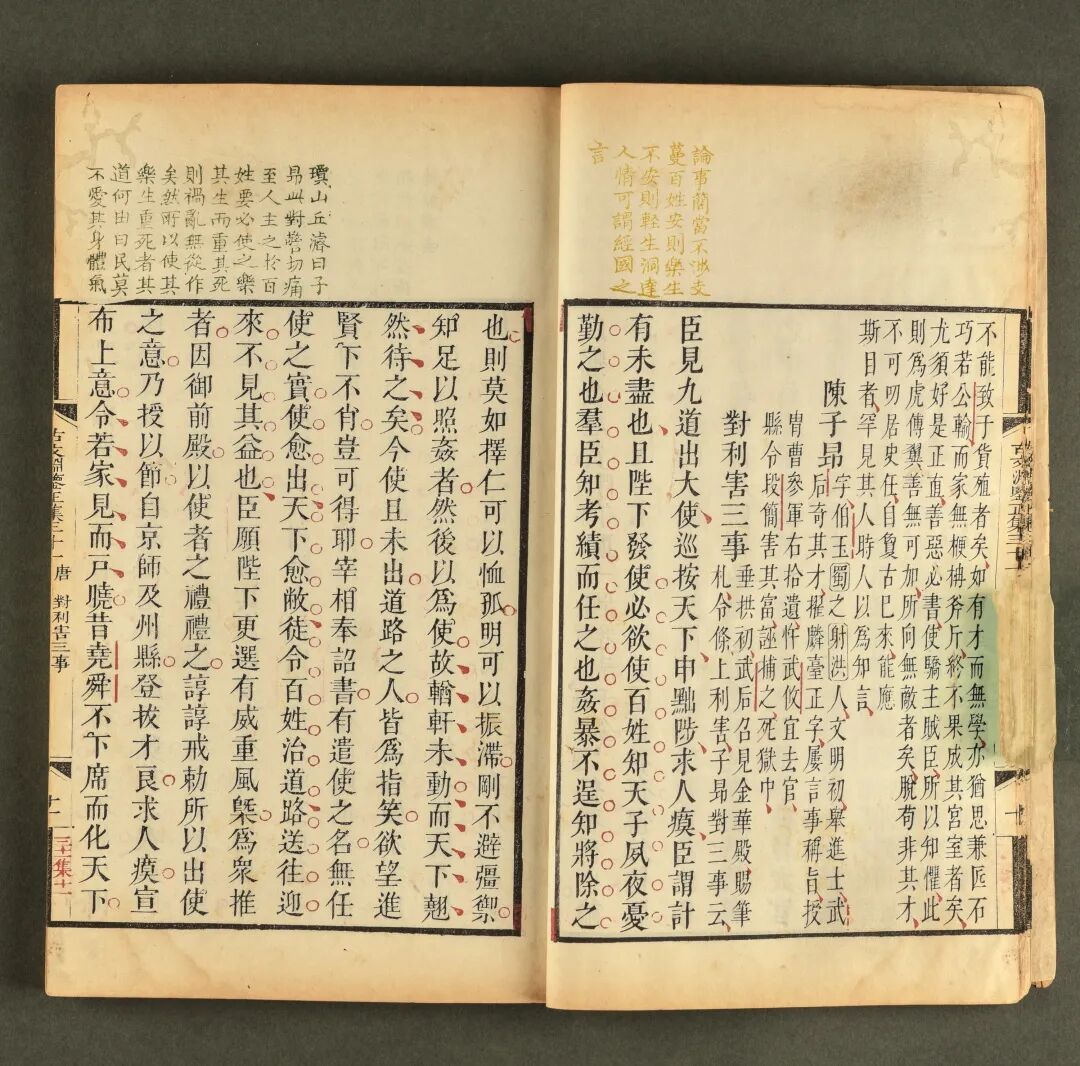 論事簡當不涉支
蔓百姓安則樂生
不安則輕生洞達
人情可謂經國之
言
不能致于貨殖者矣如有才而無學亦猶思兼匠石
巧若公輸而家無楩柟斧斤終不果成其宮室者矣
尤須好是正直善惡必書使驕主賊臣所以知懼此
則為虎傅翼善無可加所向無敵者矣脫苟非其才
不可叨居史任自敻古已來能應
斯目者罕見其人時人以為知言
陳子昂
字伯玉蜀之射洪人文明初舉進士武
后奇其才擢麟臺正字屢言事稱旨授
冑曹參軍右拾遺忤武攸宜去官
縣令段簡害其富誣捕之死獄中
對利害三事
垂拱初武后召見金華殿賜筆
札令條上利害子昂對三事云
臣見九道出大使巡按天下申黜陟求人瘼臣謂計
有未盡也且陛下發使必欲使百姓知天子夙夜憂
勤之也羣臣知考績而任之也姦暴不逞知將除之
十
瓊山丘濬曰子
昂此對警切痛
至人主之於百
姓要必使之樂
其生而重其死
則禍亂無從作
矣然所以使其
樂生重死者其
道何由曰民莫
不愛其身體氣
也則莫如擇仁可以恤孤明可以振滯剛不避彊禦
知足以照姦者然後以為使故輶軒未動而天下翹
然待之矣今使且未出道路之人皆為指笑欲望進
賢下不肖豈可得耶宰相奉詔書有遣使之名無任
使之實使愈出天下愈敝徒令百姓治道路送往迎
來不見其益也臣願陛下更選有威重風槩為衆推
者因御前殿以使者之禮禮之諄諄戒勅所以出使
之意乃授以節自京師及州縣登拔才良求人瘼宣
布上意令若家見而戸曉昔堯舜不下席而化天下
古文淵鑒正集三十一 唐 對利害三事
十一